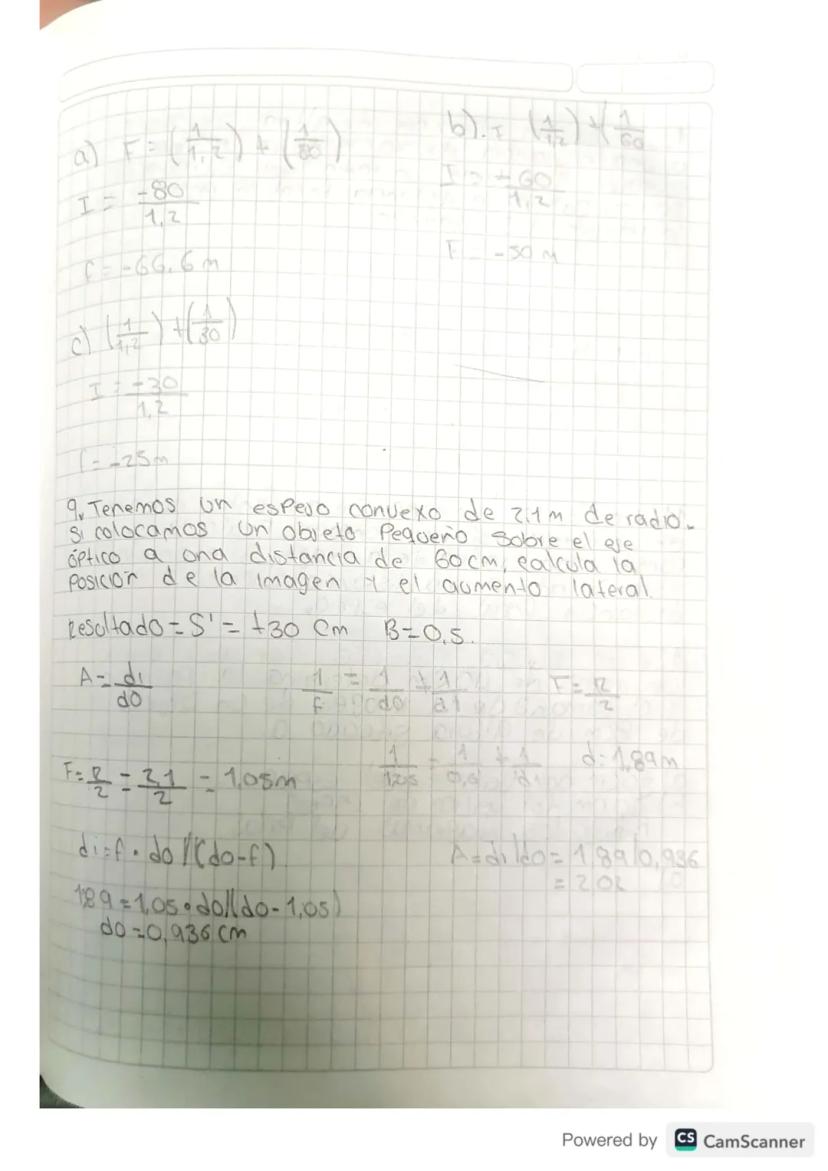 a) F = (1/1,2) + (1/80)
I = -80/1,2
f = -66,6 m
b). I (1/1,2) + (1/60
I = -60/1,2
F -50 M
c) (1/1,2) + (1/30)
I = -30/1,2
f = -25m
9. Tenemos un espejo convexo de 2,1 m de radio.
Si colocamos un objeto Pequeño sobre el eje
óptico a una distancia de 60 cm, calcula la
Posicion de la imagen y el aumento lateral.
Resultado = S' = +30 cm B = 0,5.
A = di/do 1/f = 1/do + 1/di F = R/2
F = R/2 = 2,1/2 = 1,05m
di = 1,89m
di = f • do /(do-f)
A = di/do = 1,89/0,936
= 2,02
1,89 = 1,05 • do/(do - 1,05)
do = 0,936 cm
Powered by CS CamScanner